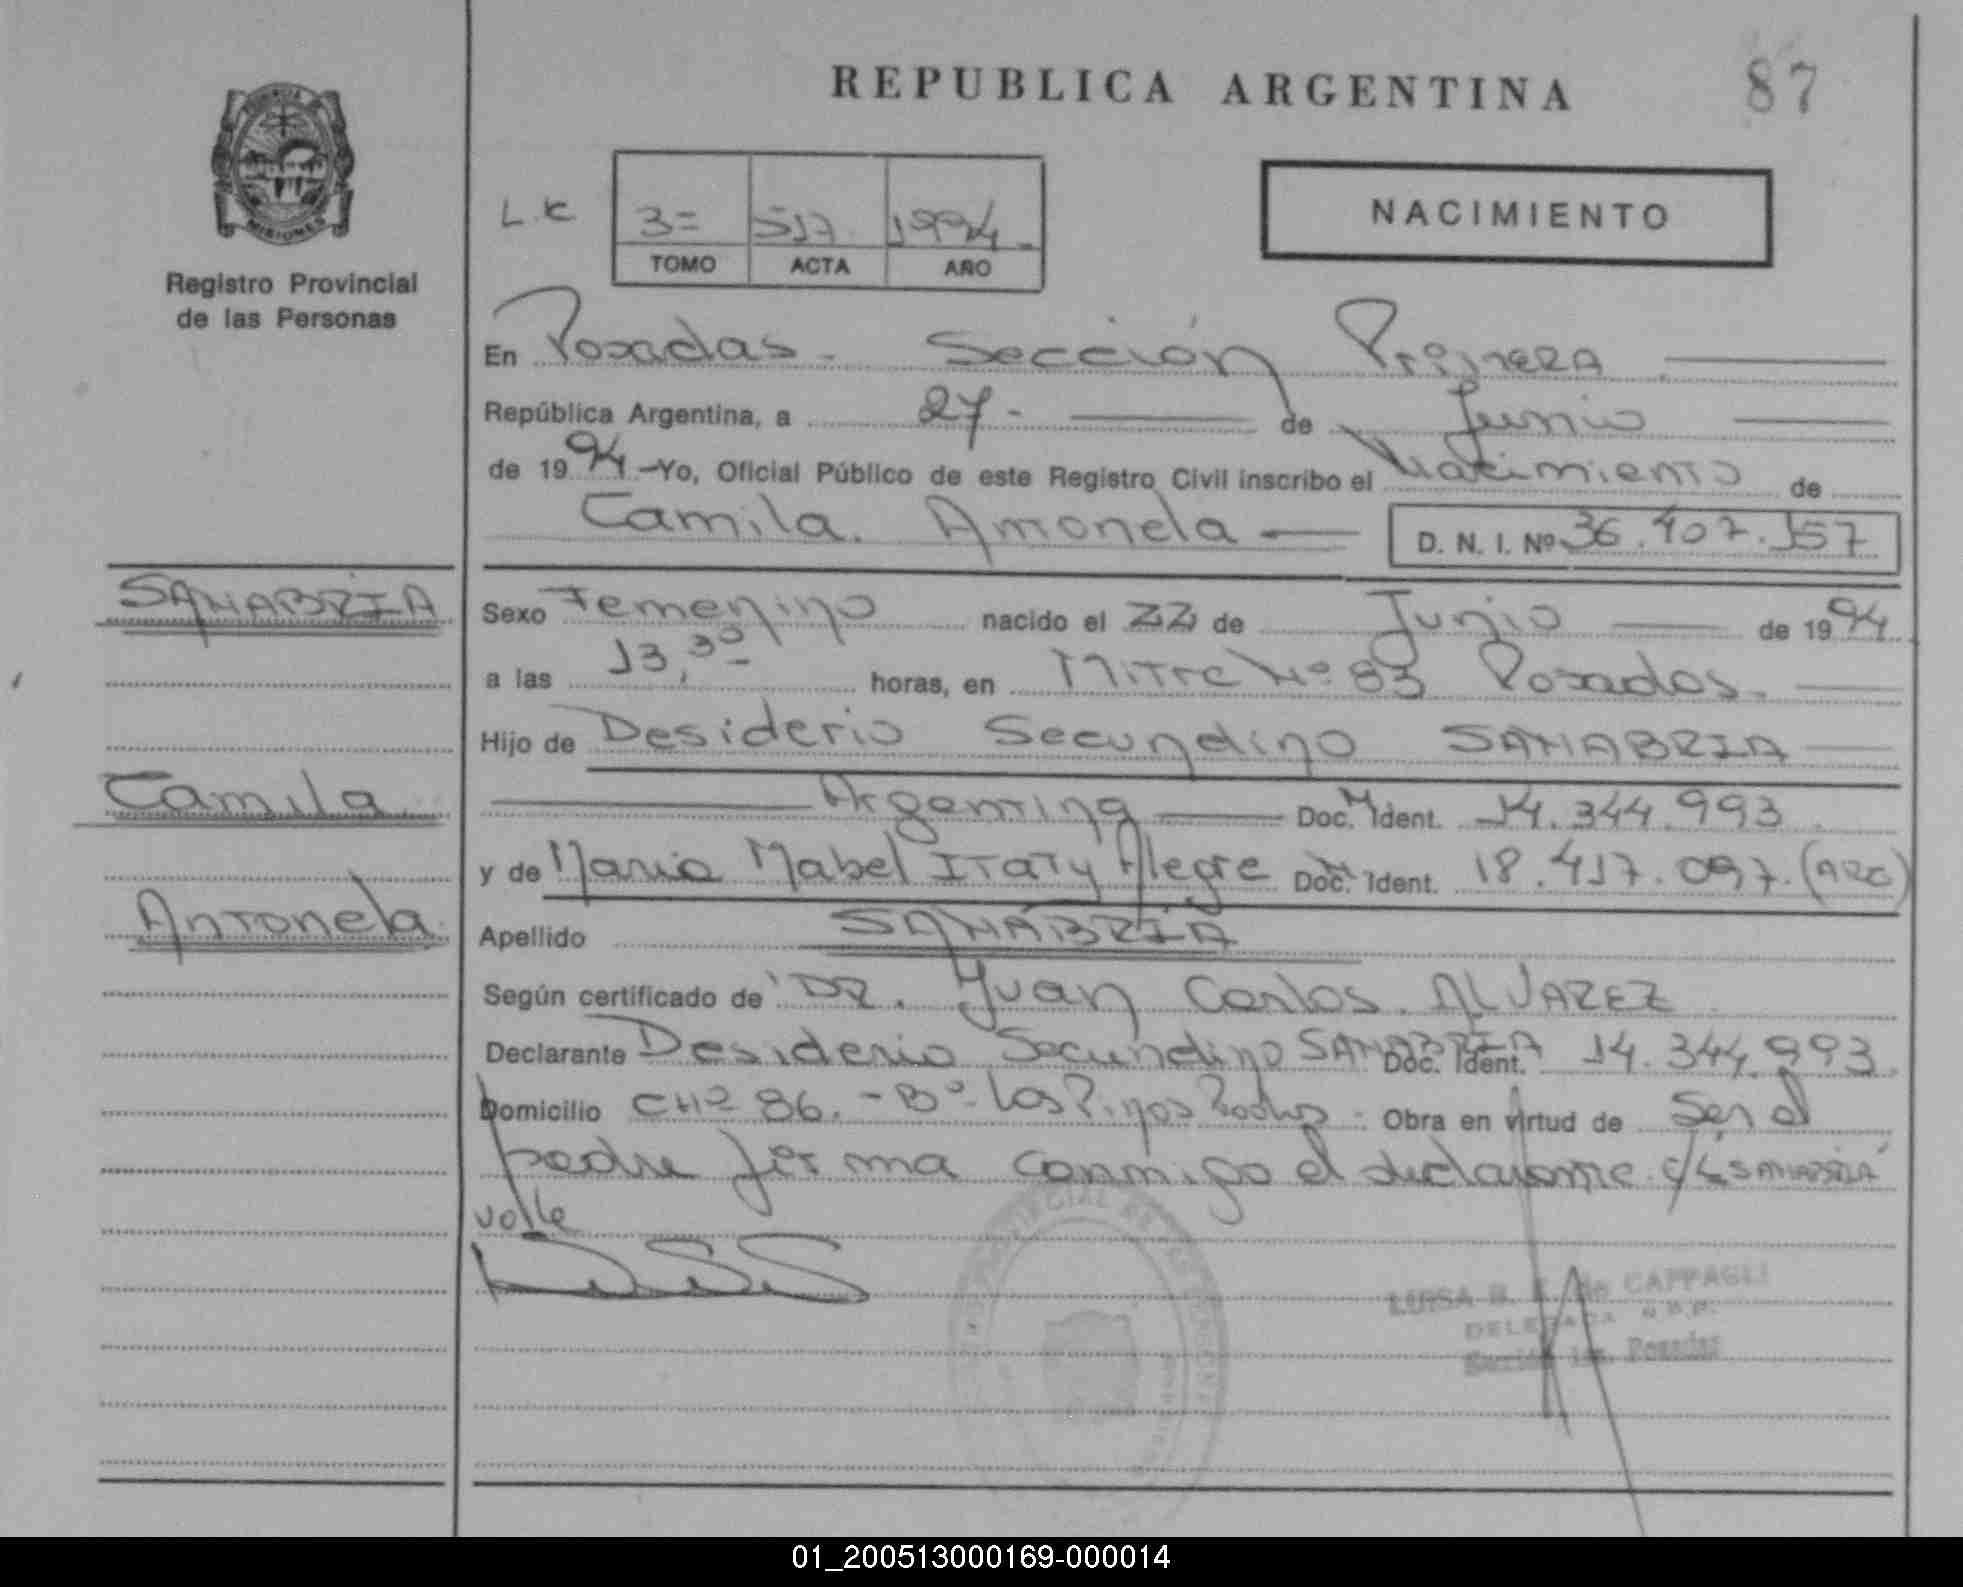 REPUBLICA ARGENTINA
87
MISIONES
Registro Provincial
de las Personas
L.K 3= 517. 1994.-
TOMO ACTA AÑO
NACIMIENTO
En Posadas - Sección Primera
República Argentina, a 27.- de Junio
de 1994.-Yo, Oficial Público de este Registro Civil inscribo el Nacimiento de
Camila. Antonela D. N. I. Nº 36.407.157
SANABRIA
Sexo Femenino nacido el 22 de Junio de 1994
a las 13,30- horas, en Mitre Nº 83 Posadas.
Hijo de Desiderio Secundino SANABRIA
Camila
Argentina Doc. M Ident. 14.344.993
y de Maria Mabel ITATY Alegre Doc. M Ident. 18.417.097. (ARG)
Antonela.
Apellido SANABRIA
Según certificado de DR. Juan Carlos. ALVAREZ.
Declarante Desiderio Secundino SANABRIA Doc. Ident. 14.344.993.
Domicilio CHº 86.- Bº Los Pinos Obra en virtud de Ser el
padre firma conmigo el declarante. SANABRIA
Valle
LUISA B. de CAPPAGLI
DELEGADA R.P.P.
Sección 1ra. Posadas
01_200513000169-000014